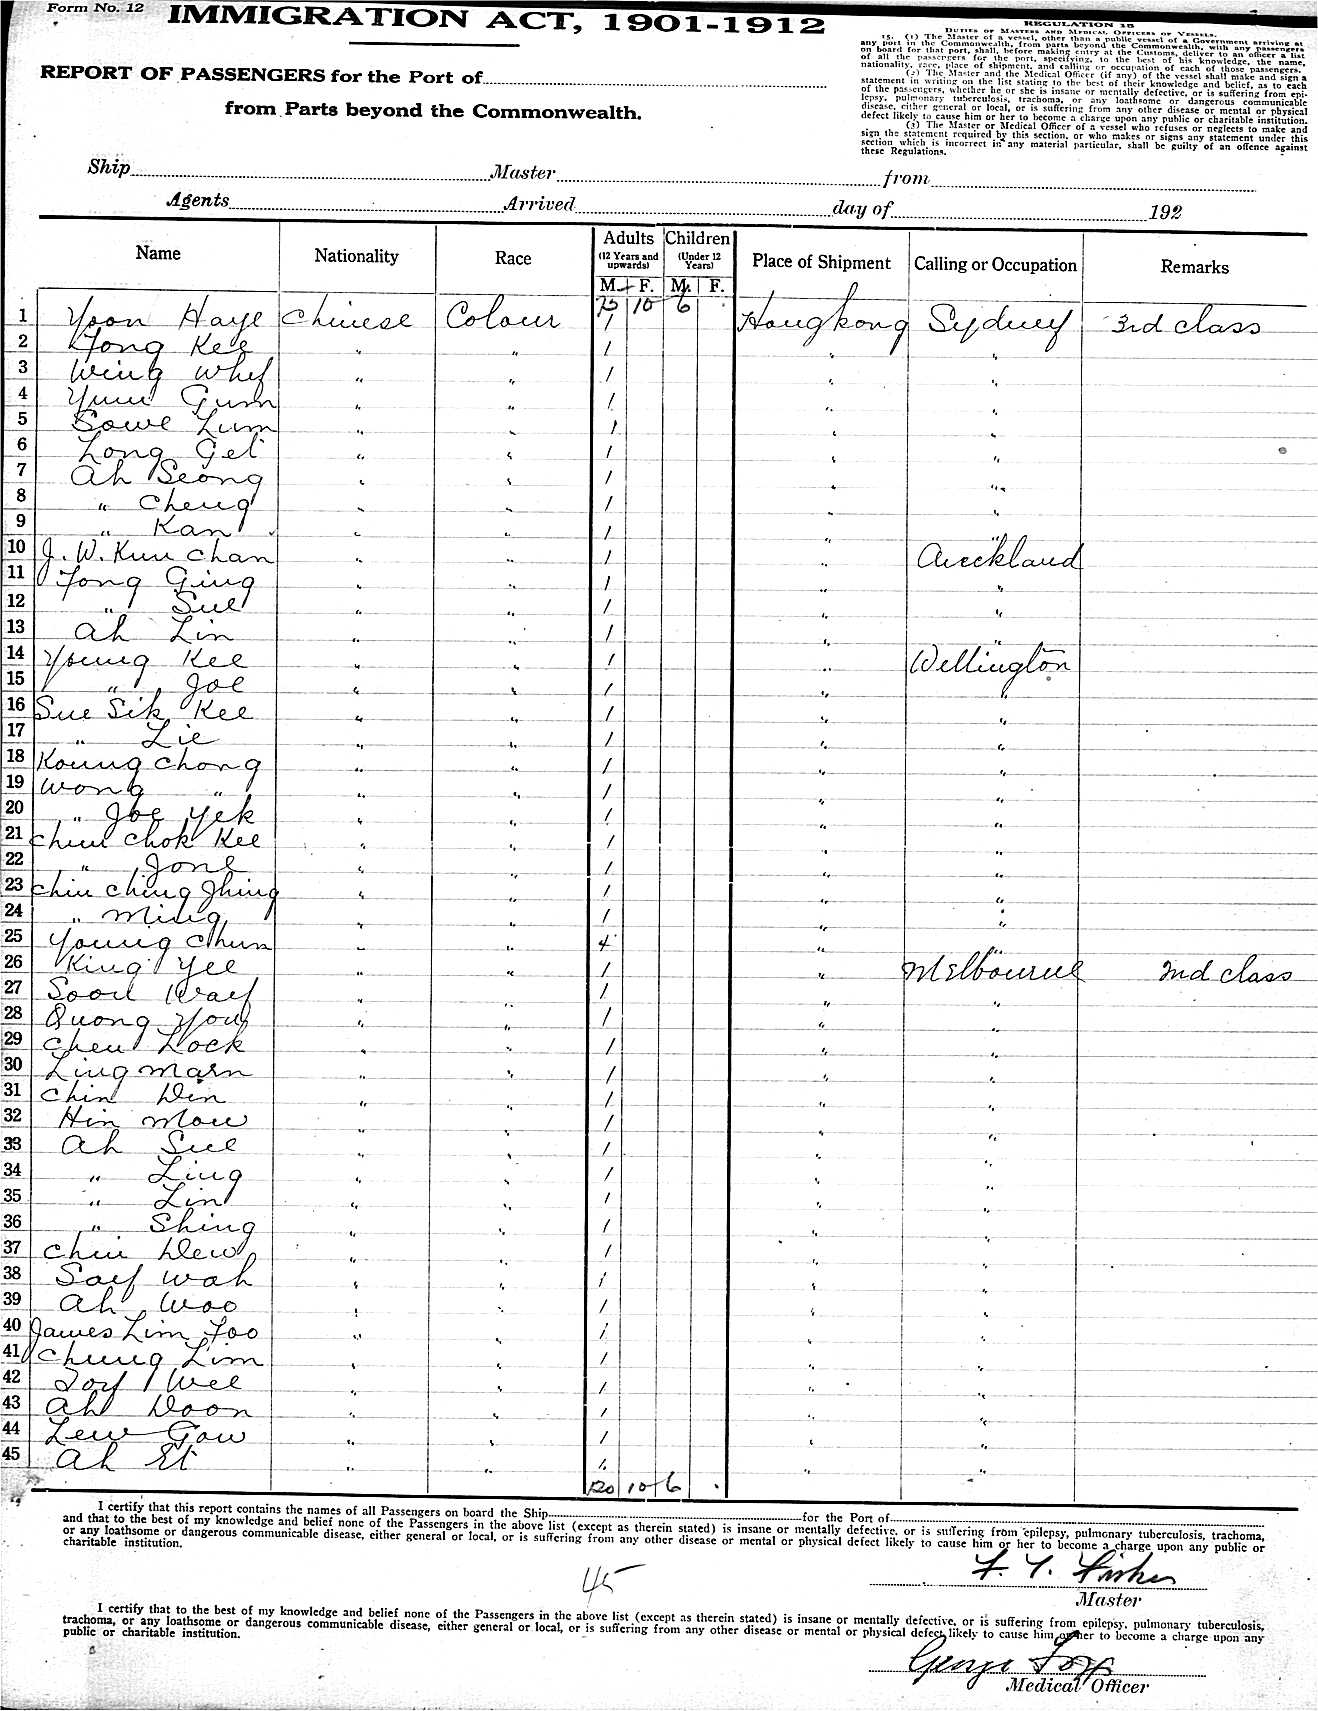 Form No. 12
IMMIGRATION ACT, 1901-1912
REPORT OF PASSENGERS for the Port of
from Parts beyond the Commonwealth.
REGULATION 15
DUTIES OF MASTERS AND MEDICAL OFFICERS OF VESSELS.
15. (1) The Master of a vessel, other than a public vessel of a Government arriving at
any port in the Commonwealth, from parts beyond the Commonwealth, with any passengers
on board for that port, shall, before making entry at the Customs, deliver to an officer a list
of all the passengers for the port, specifying, to the best of his knowledge, the name,
nationality, race, place of shipment, and calling or occupation of each of those passengers.
(2) The Master and the Medical Officer (if any) of the vessel shall make and sign a
statement in writing on the list stating to the best of their knowledge and belief, as to each
of the passengers, whether he or she is insane or mentally defective, or is suffering from epi-
lepsy, pulmonary tuberculosis, trachoma, or any loathsome or dangerous communicable
disease, either general or local, or is suffering from any other disease or mental or physical
defect likely to cause him or her to become a charge upon any public or charitable institution.
(3) The Master or Medical Officer of a vessel who refuses or neglects to make and
sign the statement required by this section, or who makes or signs any statement under this
section which is incorrect in any material particular, shall be guilty of an offence against
these Regulations.
Ship Master from
Agents Arrived day of 192
Name Nationality Race Adults (12 Years and upwards) M. F. Children (Under 12 Years) M. F. Place of Shipment Calling or Occupation Remarks
75 10 6
1 Yoon Haye Chinese Colour 1 Hongkong Sydney 3rd class
2 Tong Kee " " 1 " "
3 Wing Why " " 1 " "
4 Yuen Gum " " 1 " "
5 Sowe Lum " " 1 " "
6 Long Get " " 1 " "
7 Ah Seong " " 1 " "
8 " Cheng " " 1 " "
9 " Kan " " 1 " "
10 J. W. Kum Chan " " 1 " Auckland
11 Fong Ging " " 1 " "
12 " Sue " " 1 " "
13 Ah Lin " " 1 " "
14 Young Kee " " 1 " Wellington
15 " Joe " " 1 " "
16 Sue Sik Kee " " 1 " "
17 " Lie " " 1 " "
18 Koung Chong " " 1 " "
19 Wong " " " 1 " "
20 " Joe Yek " " 1 " "
21 Chin Chok Kee " " 1 " "
22 " Jone " " 1 " "
23 Chin Ching Jhing " " 1 " "
24 " Ming " " 1 " "
25 Young Chun " " 4 " "
26 King Yee " " 1 " Melbourne 2nd class
27 Soon Way " " 1 " "
28 Quong You " " 1 " "
29 Chen Lock " " 1 " "
30 Ling Marn " " 1 " "
31 Chin Den " " 1 " "
32 Hin Mow " " 1 " "
33 Ah Sue " " 1 " "
34 " Ling " " 1 " "
35 " Lin " " 1 " "
36 " Shing " " 1 " "
37 Chin Dew " " 1 " "
38 Say Wah " " 1 " "
39 Ah Woo " " 1 " "
40 James Lim Foo " " 1 " "
41 Chung Lim " " 1 " "
42 Toy Wee " " 1 " "
43 Ah Doon " " 1 " "
44 Lew Gow " " 1 " "
45 Ah Et " " 1 " "
120 10 6
I certify that this report contains the names of all Passengers on board the Ship for the Port of
and that to the best of my knowledge and belief none of the Passengers in the above list (except as therein stated) is insane or mentally defective, or is suffering from epilepsy, pulmonary tuberculosis, trachoma,
or any loathsome or dangerous communicable disease, either general or local, or is suffering from any other disease or mental or physical defect likely to cause him or her to become a charge upon any public or
charitable institution.
45
Master
I certify that to the best of my knowledge and belief none of the Passengers in the above list (except as therein stated) is insane or mentally defective, or is suffering from epilepsy, pulmonary tuberculosis,
trachoma, or any loathsome or dangerous communicable disease, either general or local, or is suffering from any other disease or mental or physical defect likely to cause him or her to become a charge upon any
public or charitable institution.
George
Medical Officer